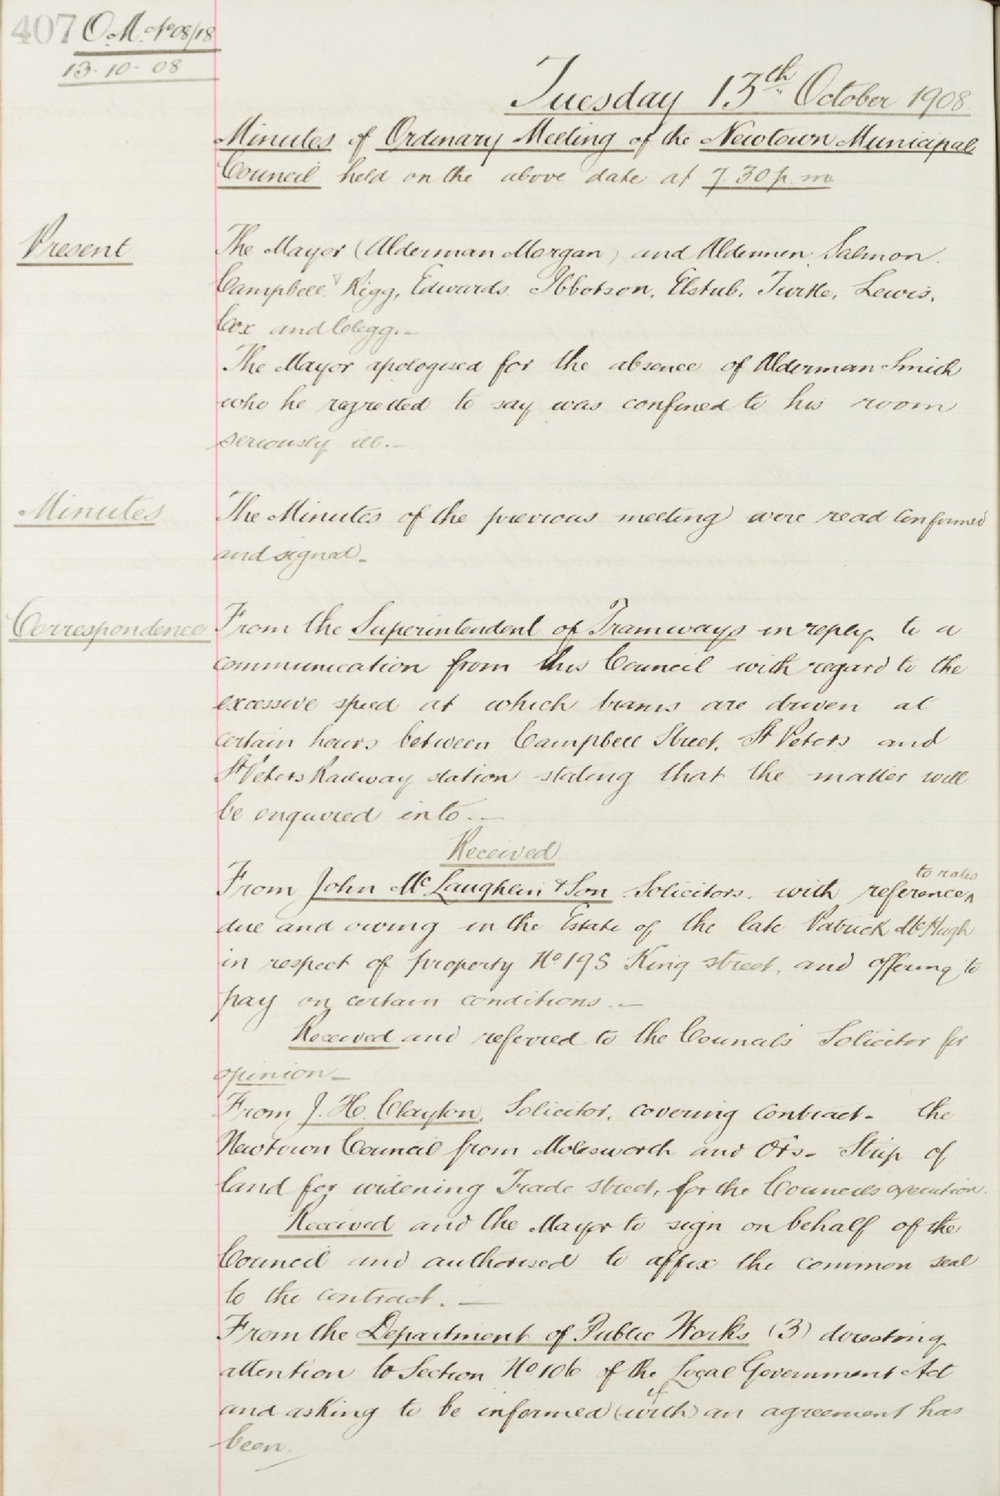 407 O.M. No 08/18
13-10-08
Tuesday 13th October 1908
Minutes of Ordinary Meeting of the Newtown Municipal
Council held on the above date at 7.30 p.m.
Present
The Mayor (Alderman Morgan) and Aldermen Salmon.
Campbell, Rigg, Edwards Ibbotson, Elstub, Turtle, Lewis,
Cox and Clegg.—
The Mayor apologised for the absence of Alderman Smith
who he regretted to say was confined to his room
seriously ill.—
Minutes
The Minutes of the previous meeting were read confirmed
and signed—
Correspondence
From the Superintendent of Tramways in reply to a
communication from this Council with regard to the
excessive speed at which trams are driven at
certain hours between Campbell Street, St Peters and
St Peters Railway station stating that the matter will
be enquired into.—
Received
From John McLaughlin & Son Solicitors, with reference to rates
due and owing in the Estate of the late Patrick McHugh
in respect of property No 195 King street, and offering to
pay on certain conditions.—
Received and referred to the Council's Solicitor for
opinion—
From J. H. Clayton, Solicitor, covering contract— the
Newtown Council from Molesworth and Ors— Strip of
land for widening Trade street, for the Councils execution.
Received and the Mayor to sign on behalf of the
Council and authorised to affix the common seal
to the contract.—
From the Department of Public Works (3) directing
attention to Section No 106 of the Local Government Act
and asking to be informed (with) if an agreement has
been.